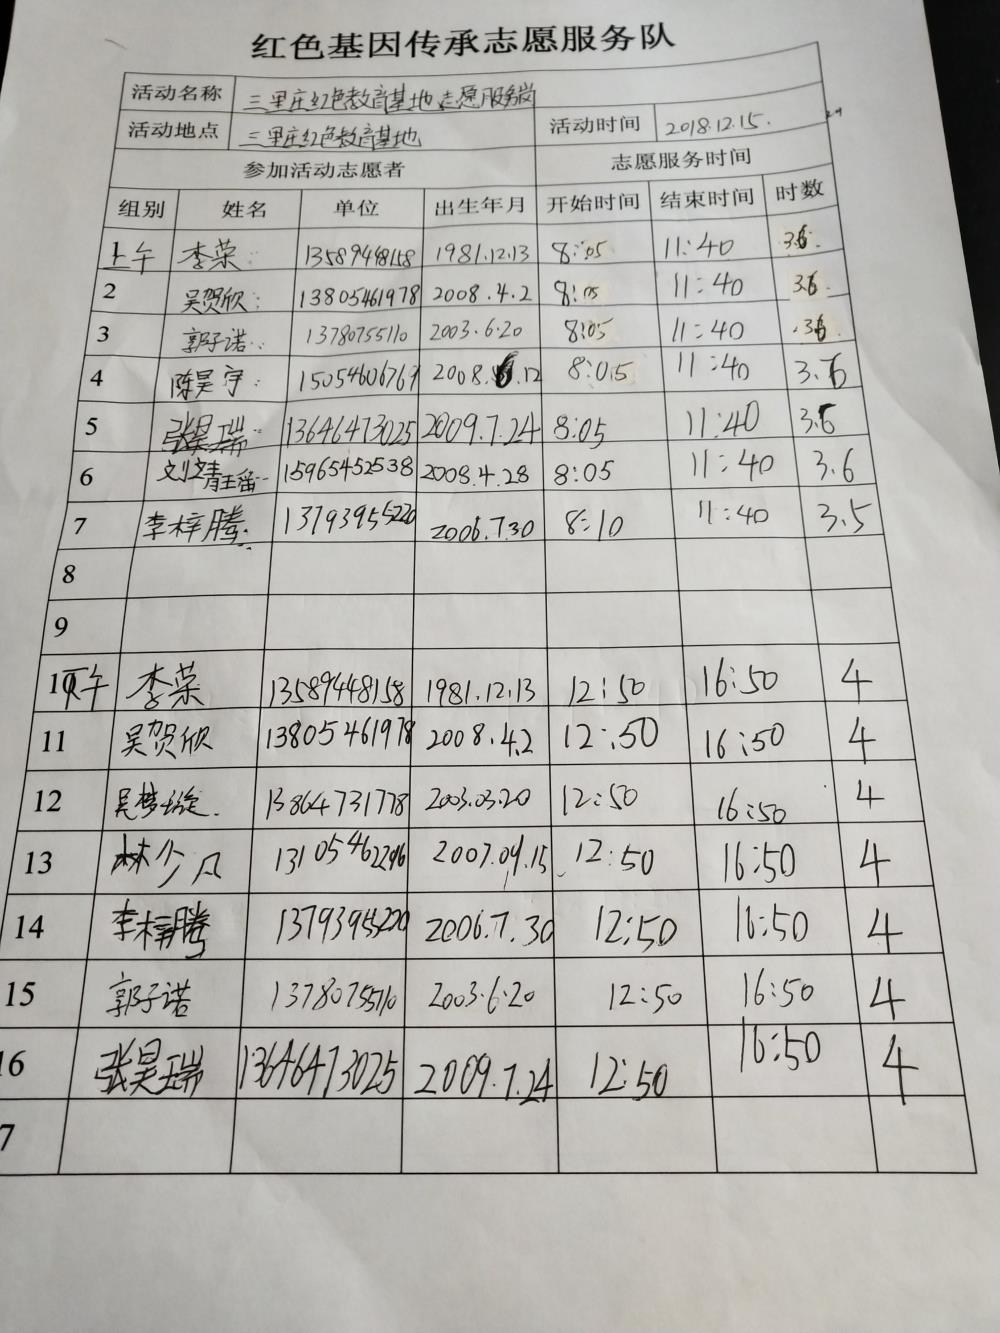 红色基因传承志愿服务队
活动名称 三里庄红色教育基地志愿服务岗
活动地点 三里庄红色教育基地 活动时间 2018.12.15.
参加活动志愿者 志愿服务时间
组别 姓名 单位 出生年月 开始时间 结束时间 时数
上午 李荣 13589448158 1981.12.13 8:05 11:40 3.6
2 吴贺欣 13805461978 2008.4.2 8:05 11:40 3.6
3 郭子诺 13780755110 2003.6.20 8:05 11:40 3.6
4 陈昊宇 15054606769 2008. .12 8:05 11:40 3.6
5 张昊瑞 13646473025 2009.7.24 8:05 11:40 3.6
6 刘靖瑶 15965452538 2008.4.28 8:05 11:40 3.6
7 李梓腾 13793955220 2006.7.30 8:10 11:40 3.5
8
9
10 下午 李荣 13589448158 1981.12.13 12:50 16:50 4
11 吴贺欣 13805461978 2008.4.2 12:50 16:50 4
12 吴梦璇 13864731778 2003.03.20 12:50 16:50 4
13 林少凡 2007.09.15 12:50 16:50 4
14 李梓腾 13793955220 2006.7.30 12:50 16:50 4
15 郭子诺 13780755110 2003.6.20 12:50 16:50 4
16 张昊瑞 13646473025 2009.7.24 12:50 16:50 4
7